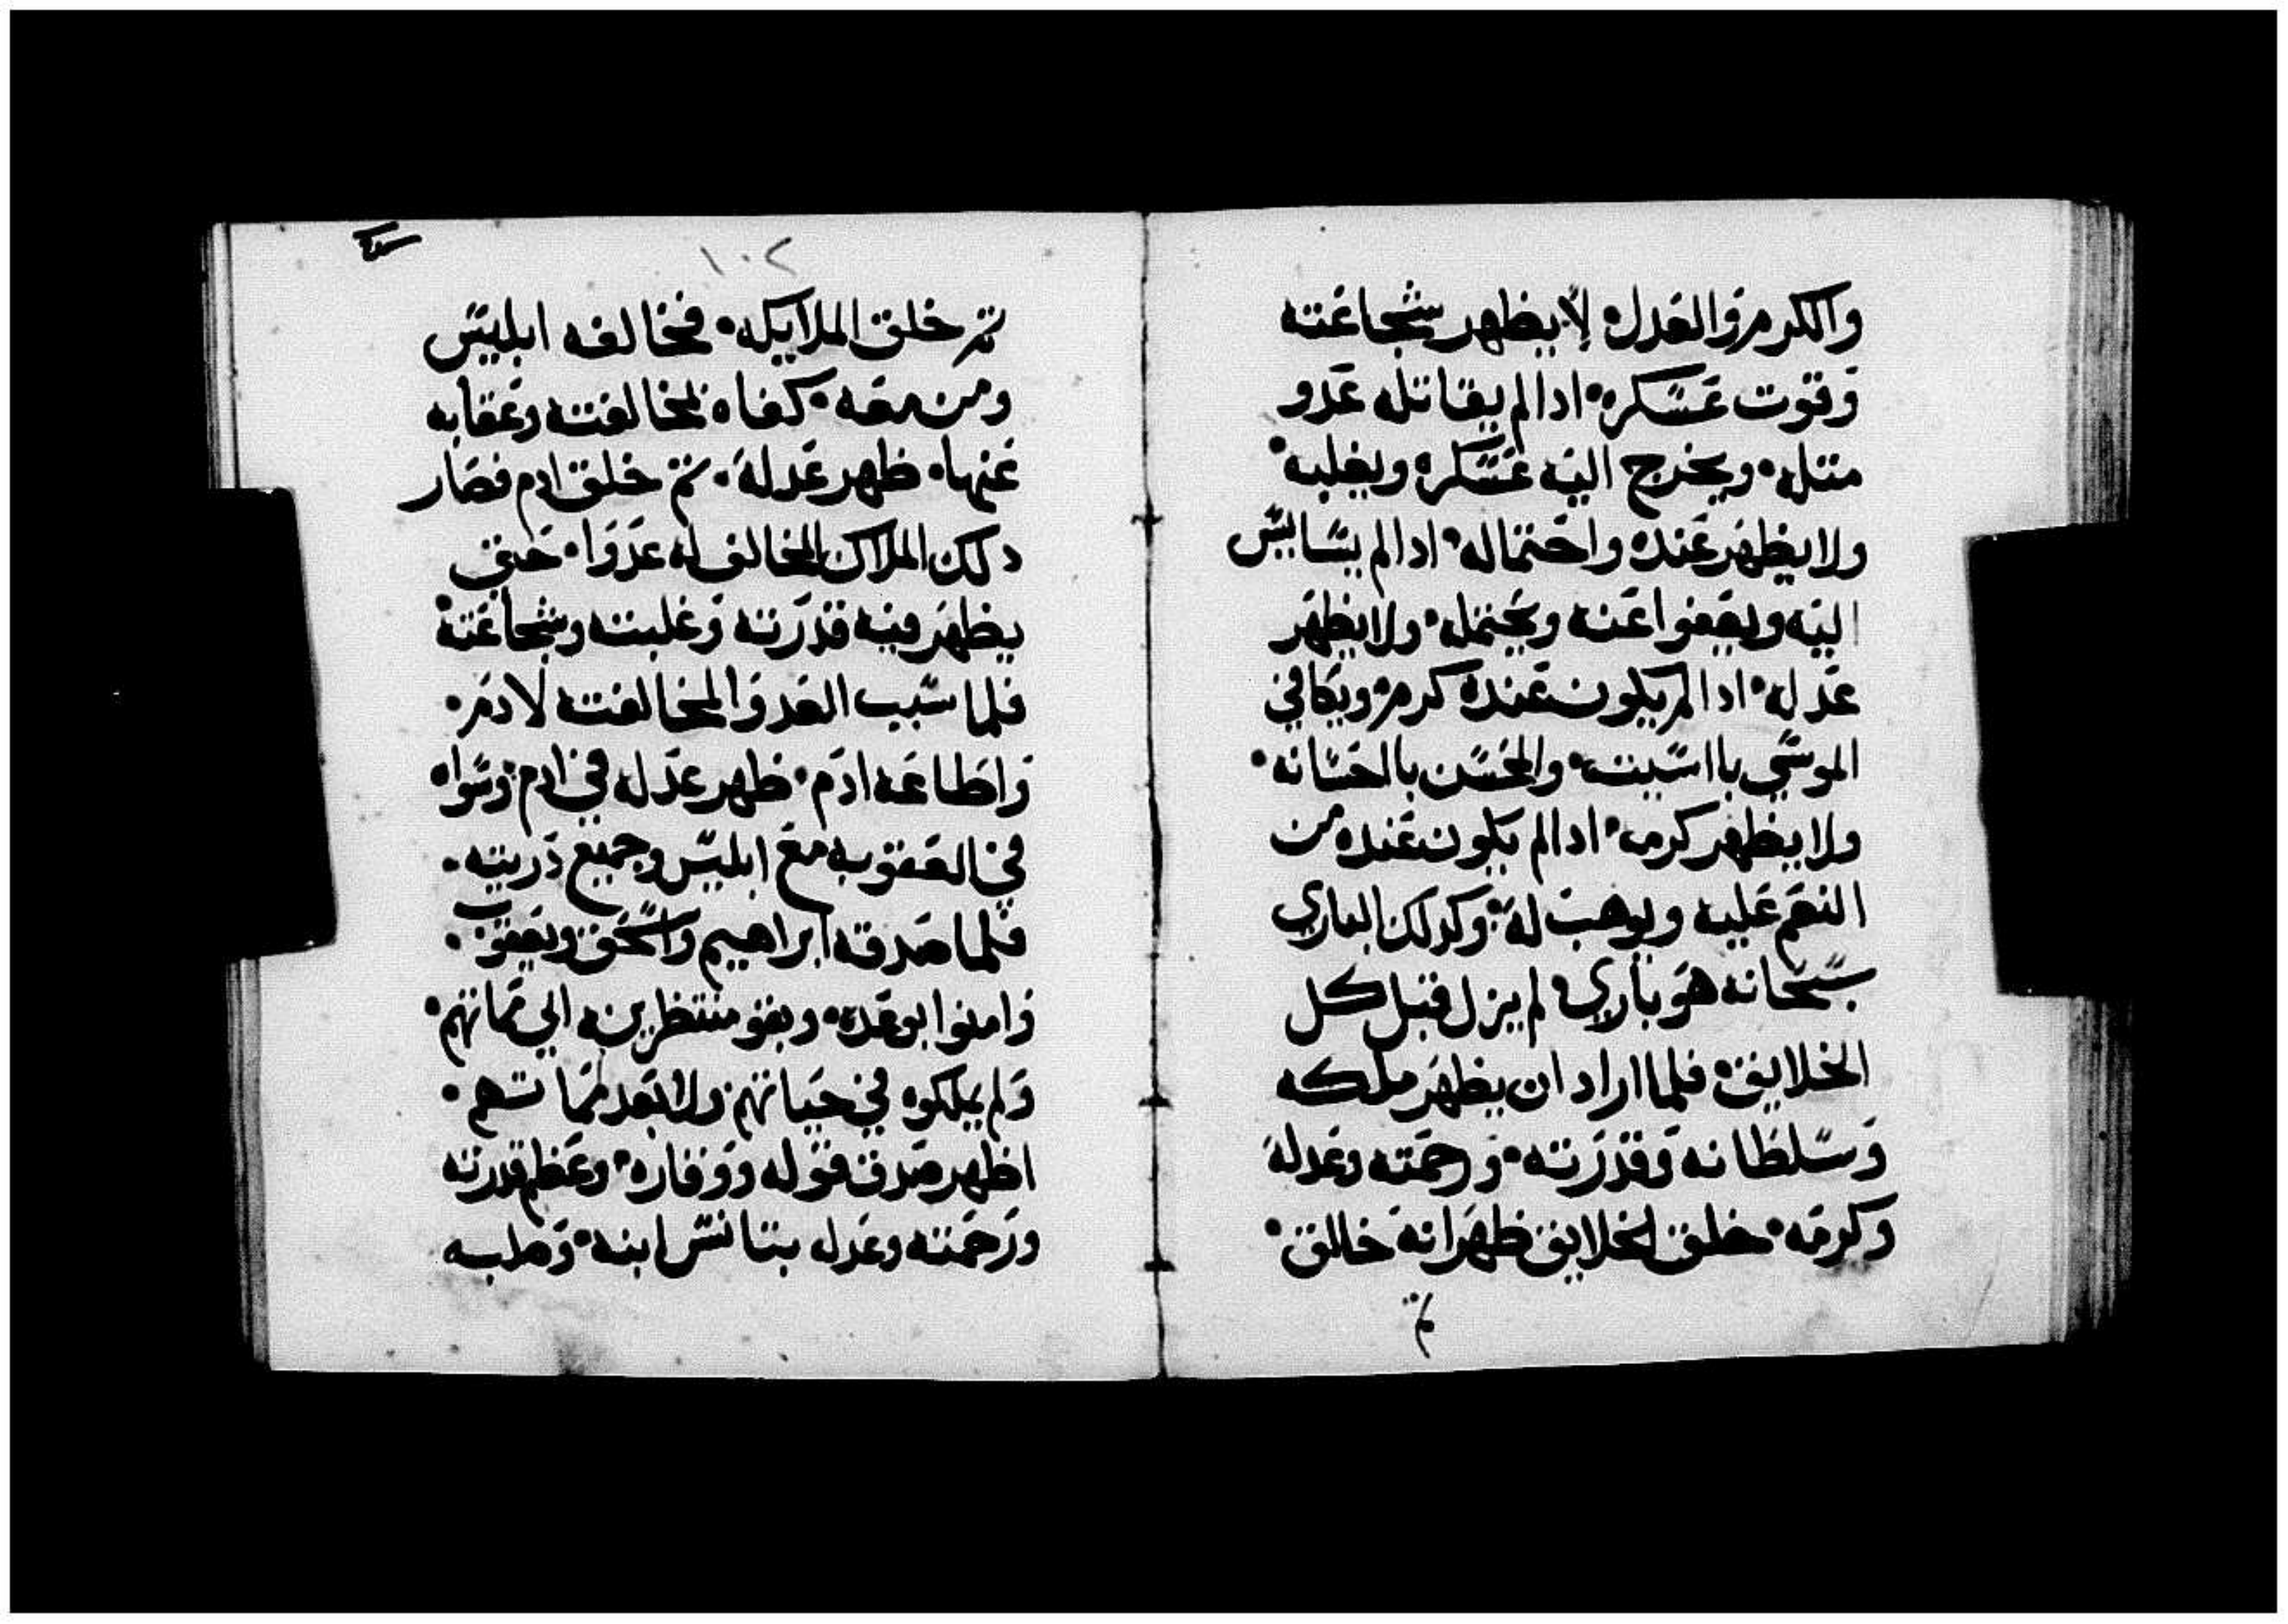 والكرم والعدل• لا يظهر شجاعته
وقوت عسكره• ادا لم يقاتله عدو
متله• ويخرج اليه عسكره ويغلبه•
ولا يظهر عنده واحتماله• ادا لم يسا
اليه ويعفوا عنه ويحتمله• ولا يظهر
عدله• ادا لم يكون عنده كرم• ويكافي
الموسي باالسيت• والمحسن بالحسانه•
ولا يظهر كرمه• ادا لم يكون عنده من
النعم عليه ويوهب له• وكدلك الباري
سبحانه هو باري• لم يزل قبل كل
الخلايق• فلما اراد ان يظهر ملكه
وسلطانه وقدرته• ورحمته وعدله
وكرمه• خلق الخلايق ظهر انه خالق•
١٠٢
تم خلق الملايكه• فخالفه ابليس
ومن معه• كفاه لمخالفته وعقابه
عنها• ظهر عدله• تم خلق ادم فصار
دلك الملاك المخالف له عدوا• حتي
يظهر فيه قدرته وغلبته وشجاعته•
فلما سبب العدو المخالفته لادم•
واطاعه ادم• ظهر عدله في ادم• وسواه
في العقوبه مع ابليس وجميع دريته•
فلما صدقه ابراهيم واسحق ويعقوب•
وامنوا بوعده• وبقو منتظرينه الي مماتهم•
ولم يملكوه في حياتهم ولا بعد مماتهم•
اظهر صدق قوله ووفاره• وعظم قدرته
ورحمته وعدله بتانس ابنه• وصلبه